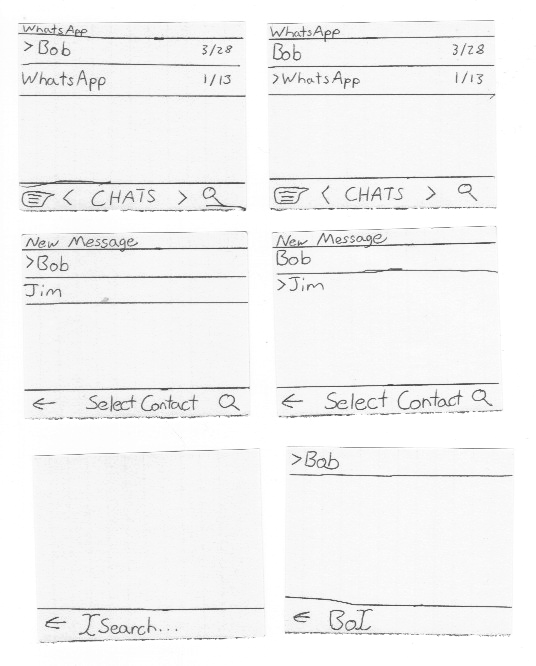 WhatsApp
>Bob 3/28
WhatsApp 1/13
< CHATS >
WhatsApp
Bob 3/28
>WhatsApp 1/13
< CHATS >
New Message
>Bob
Jim
← Select Contact
New Message
Bob
>Jim
← Select Contact
← Search...
>Bob
← Bo